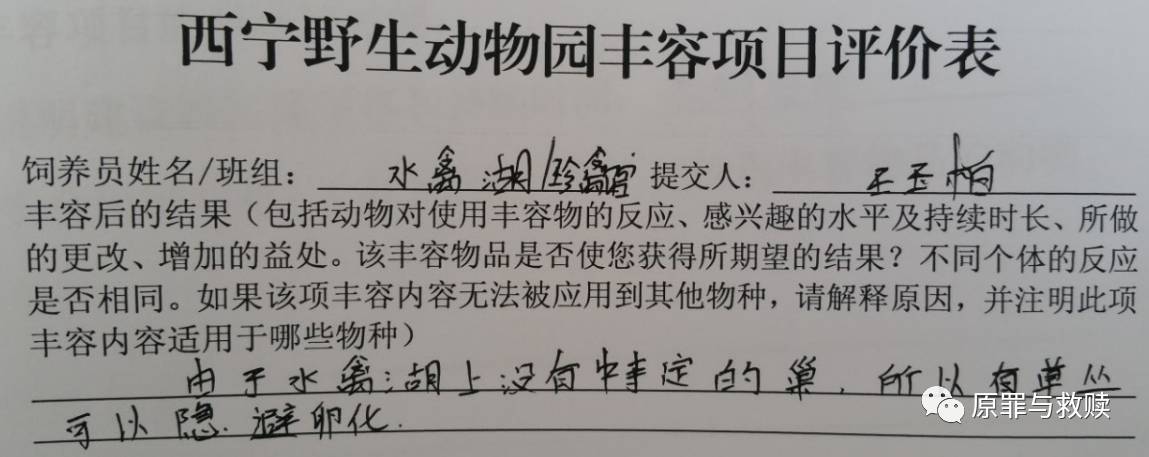 西宁野生动物园丰容项目评价表
饲养员姓名/班组：水禽湖/珍禽馆 提交人：王玉柏
丰容后的结果（包括动物对使用丰容物的反应、感兴趣的水平及持续时长、所做
的更改、增加的益处。该丰容物品是否使您获得所期望的结果？不同个体的反应
是否相同。如果该项丰容内容无法被应用到其他物种，请解释原因，并注明此项
丰容内容适用于哪些物种）
由于水禽湖上没有特定的巢，所以有草丛
可以隐避卵化.
原罪与救赎